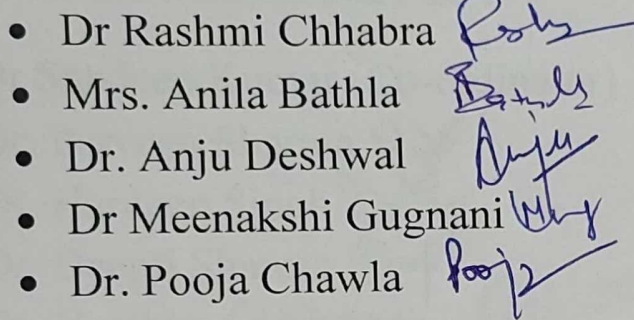 • Dr Rashmi Chhabra
• Mrs. Anila Bathla
• Dr. Anju Deshwal Anju
• Dr Meenakshi Gugnani
• Dr. Pooja Chawla Pooja